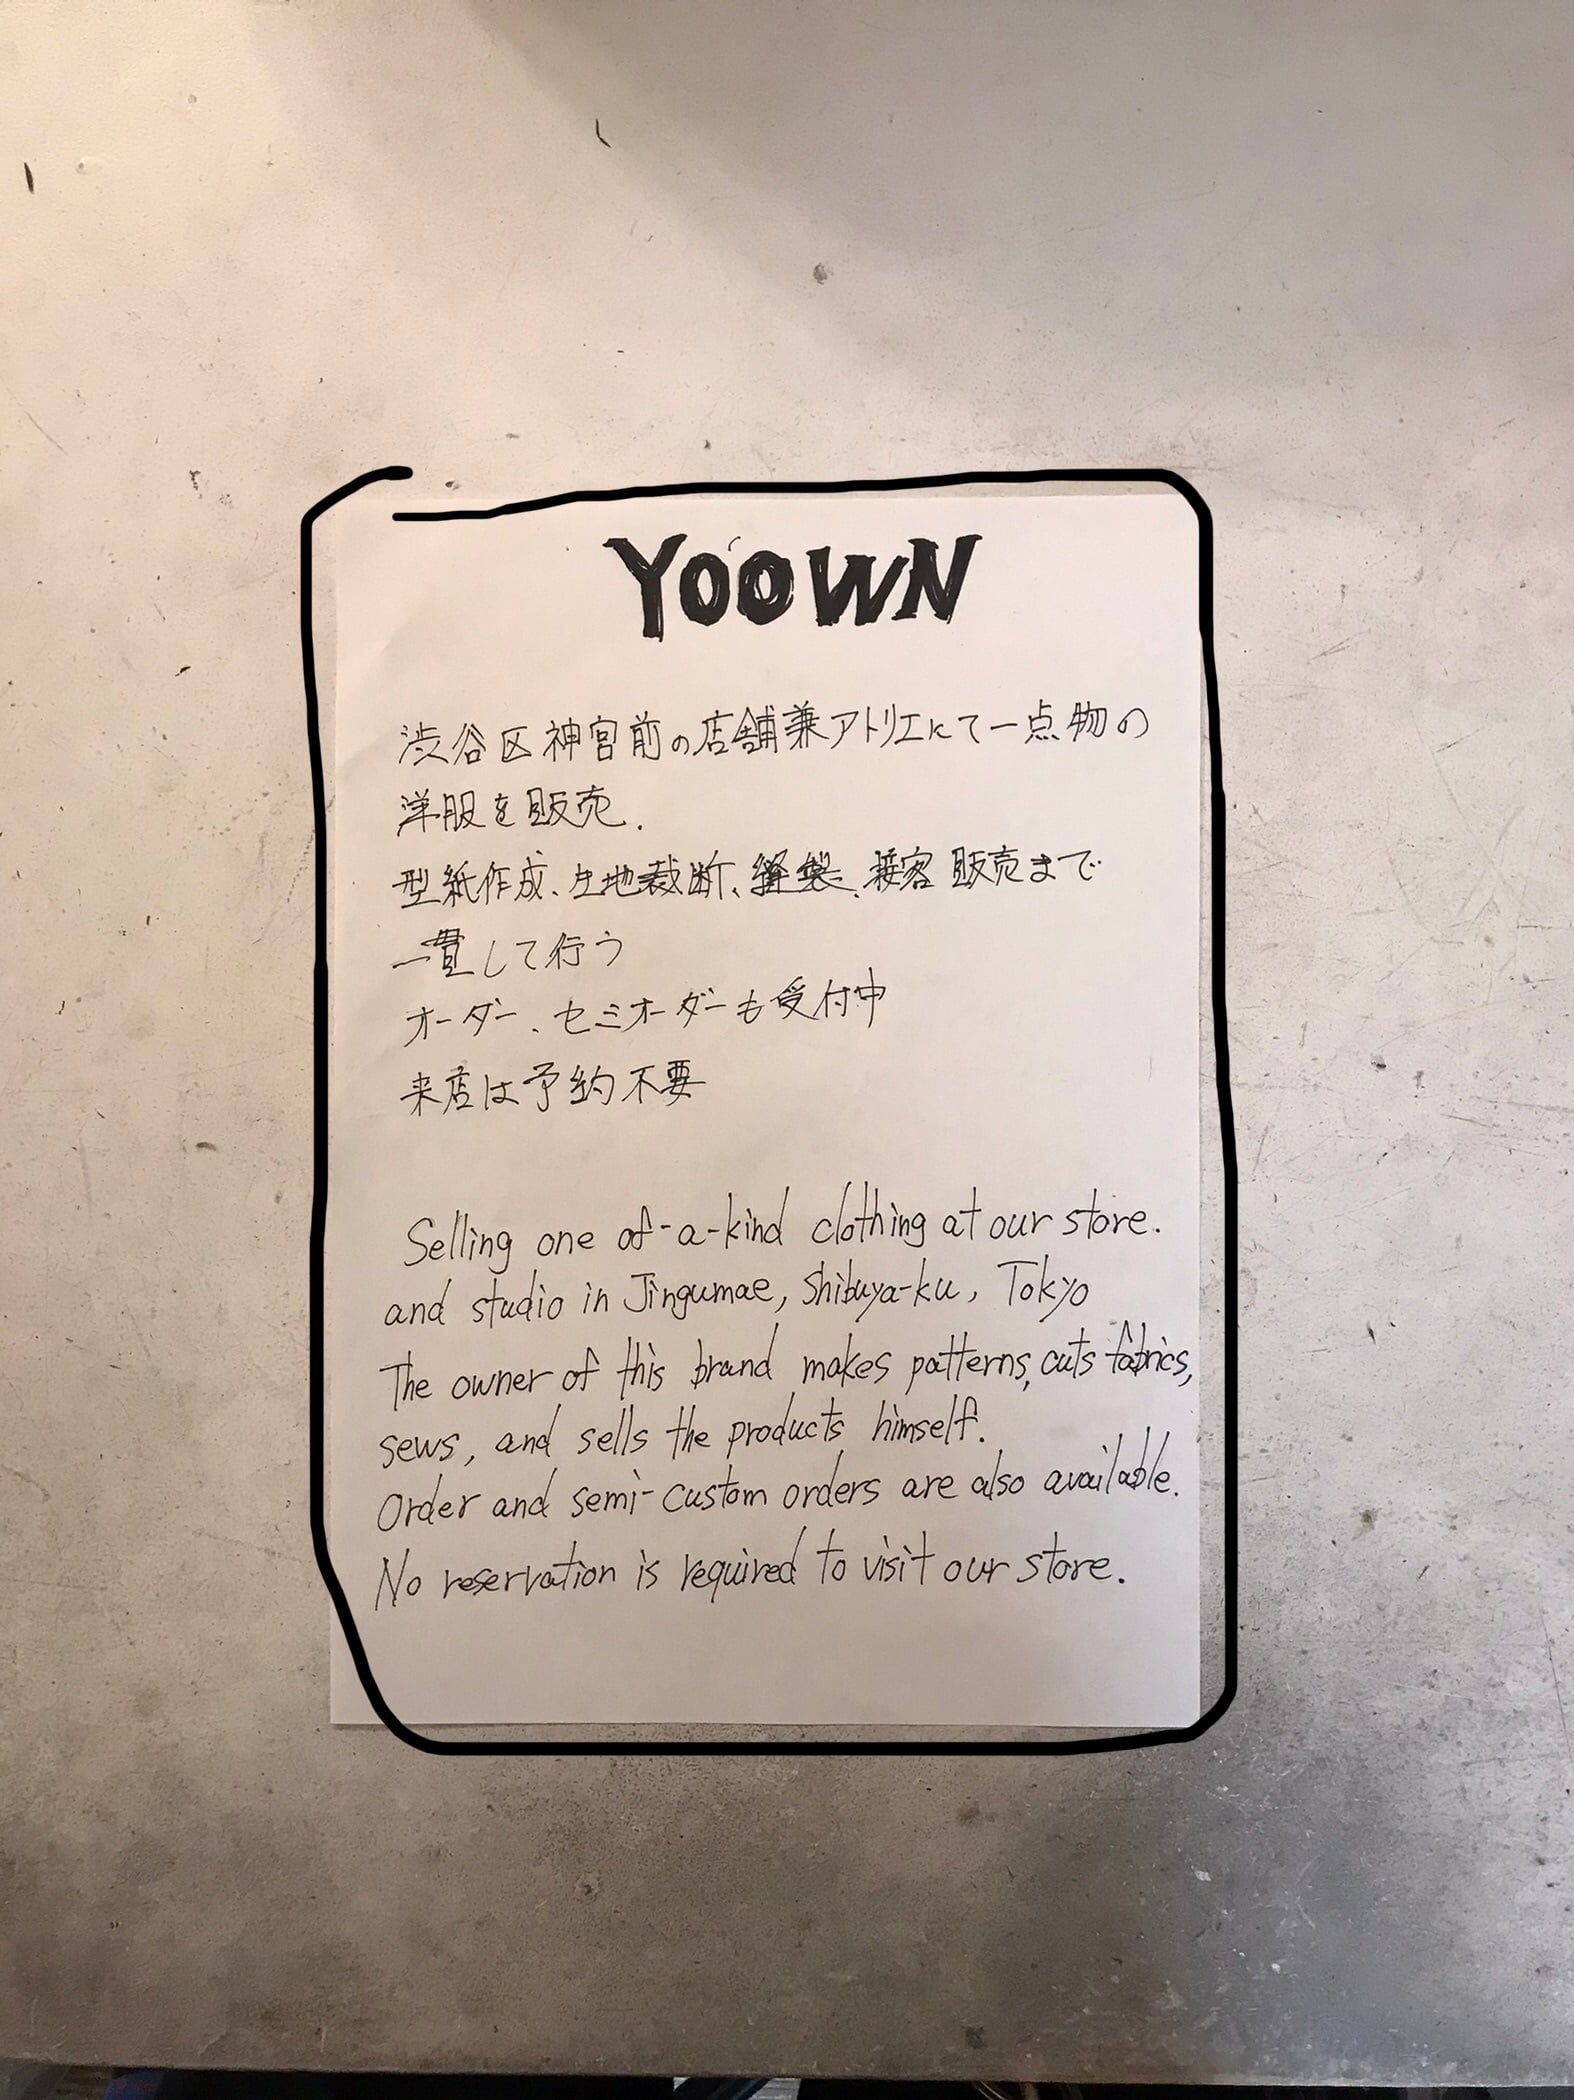 YOOWN
渋谷区神宮前の店舗兼アトリエにて一点物の
洋服を販売.
型紙作成、生地裁断、縫製、接客販売まで
一貫して行う
オーダー、セミオーダーも受付中
来店は予約不要
Selling one of-a-kind clothing at our store.
and studio in Jingumae, Shibuya-ku, Tokyo
The owner of this brand makes patterns, cuts fabrics,
sews, and sells the products himself.
Order and semi-custom orders are also available.
No reservation is required to visit our store.